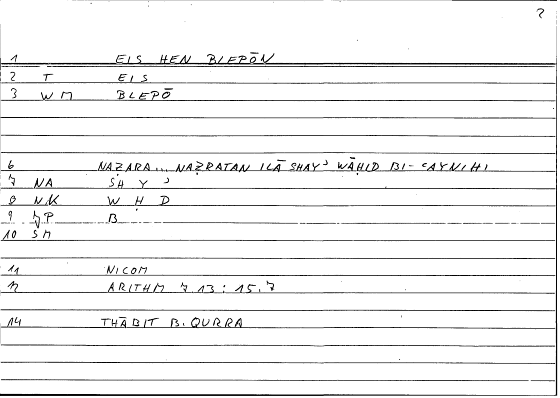 2
1 EIS HEN BLEPŌN
2 T EIS
3 WM BLEPŌ
6 NAẒARA... NAẒRATAN ILĀ SHAYʾ WĀḤID BI-ʿAYNIHI
7 NA SH Y ʾ
8 NK W Ḥ D
9 7P B
10 SM
11 NICOM
12 ARITHM 7 13 : 15.7
14 THĀBIT B. QURRA